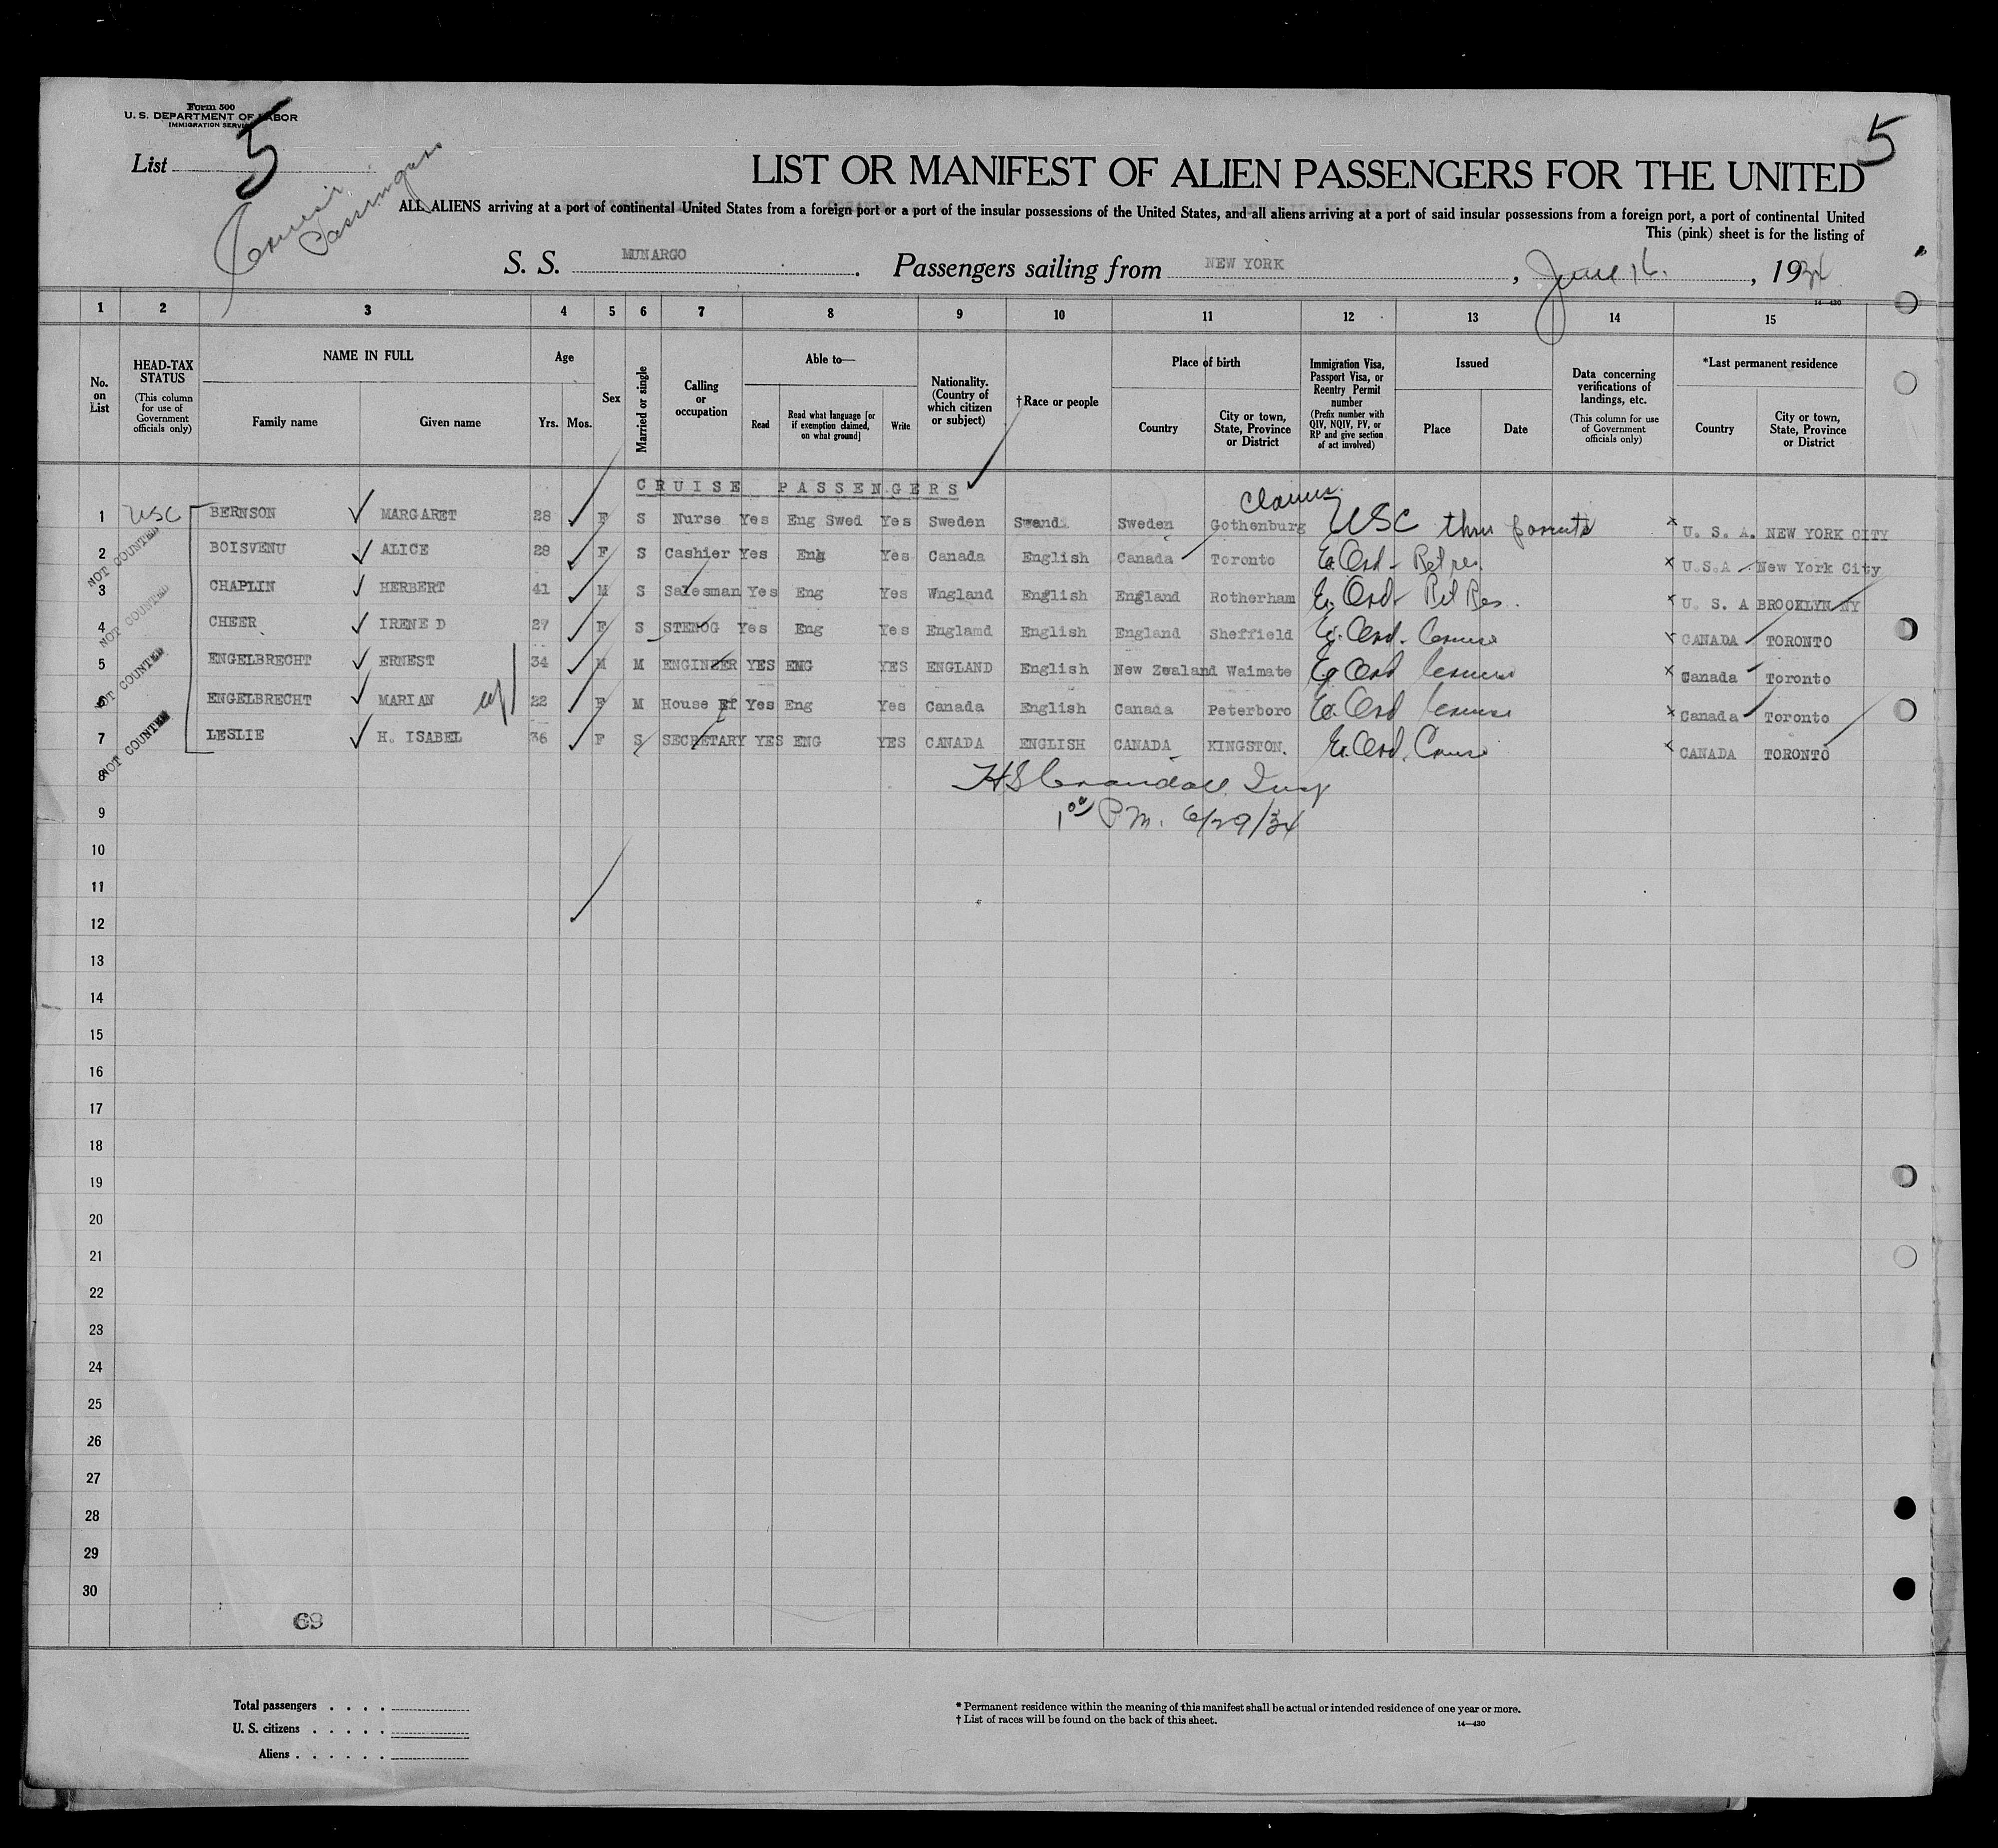 Form 500
U. S. DEPARTMENT OF LABOR
IMMIGRATION SERVICE
List 5
5
Cruise Passengers
LIST OR MANIFEST OF ALIEN PASSENGERS FOR THE UNITED
ALL ALIENS arriving at a port of continental United States from a foreign port or a port of the insular possessions of the United States, and all aliens arriving at a port of said insular possessions from a foreign port, a port of continental United
This (pink) sheet is for the listing of
S. S. MUNARGO. Passengers sailing from NEW YORK, June 16., 1934
14—430
1 2 3 4 5 6 7 8 9 10 11 12 13 14 15
No. on List
HEAD-TAX STATUS (This column for use of Government officials only)
NAME IN FULL Family name Given name
Age Yrs. Mos.
Sex
Married or single
Calling or occupation
Able to— Read Read what language [or if exemption claimed, on what ground] Write
Nationality. (Country of which citizen or subject)
†Race or people
Place of birth Country City or town, State, Province or District
Immigration Visa, Passport Visa, or Reentry Permit number (Prefix number with QIV, NQIV, PV, or RP and give section of act involved)
Issued Place Date
Data concerning verifications of landings, etc. (This column for use of Government officials only)
*Last permanent residence Country City or town, State, Province or District
CRUISE PASSENGERS
1 USC BERNSON MARGARET 28 F S Nurse Yes Eng Swed Yes Sweden Swand Sweden Gothenburg Claims USC thru parents x U. S. A. NEW YORK CITY
2 NOT COUNTED BOISVENU ALICE 28 F S Cashier Yes Eng Yes Canada English Canada Toronto Ex. Ord - Ret res. x U.S.A New York City
3 NOT COUNTED CHAPLIN HERBERT 41 M S Salesman Yes Eng Yes Wngland English England Rotherham Ex. Ord - Ret Res. x U. S. A BROOKLYN NY
4 CHEER IRENE D 27 F S STEROG Yes Eng Yes Englamd English England Sheffield Ex. Ord. Cruise x CANADA TORONTO
5 NOT COUNTED ENGELBRECHT ERNEST 34 M M ENGINEER YES ENG YES ENGLAND English New Zealand Waimate Ex Ord Cruise x Canada Toronto
6 ENGELBRECHT MARIAN 22 F M House Yes Eng Yes Canada English Canada Peterboro Ex. Ord Cruise x Canada Toronto
7 NOT COUNTED LESLIE H. ISABEL 36 F S SECRETARY YES ENG YES CANADA ENGLISH CANADA KINGSTON. Ex. Ord. Cruise x CANADA TORONTO
8 HS Crandall Insp
9 1 00 P.M. 6/29/34
10
11
12
13
14
15
16
17
18
19
20
21
22
23
24
25
26
27
28
29
30
Total passengers . . . .
U. S. citizens . . . . .
Aliens . . . . . .
* Permanent residence within the meaning of this manifest shall be actual or intended residence of one year or more.
† List of races will be found on the back of this sheet.
14—430